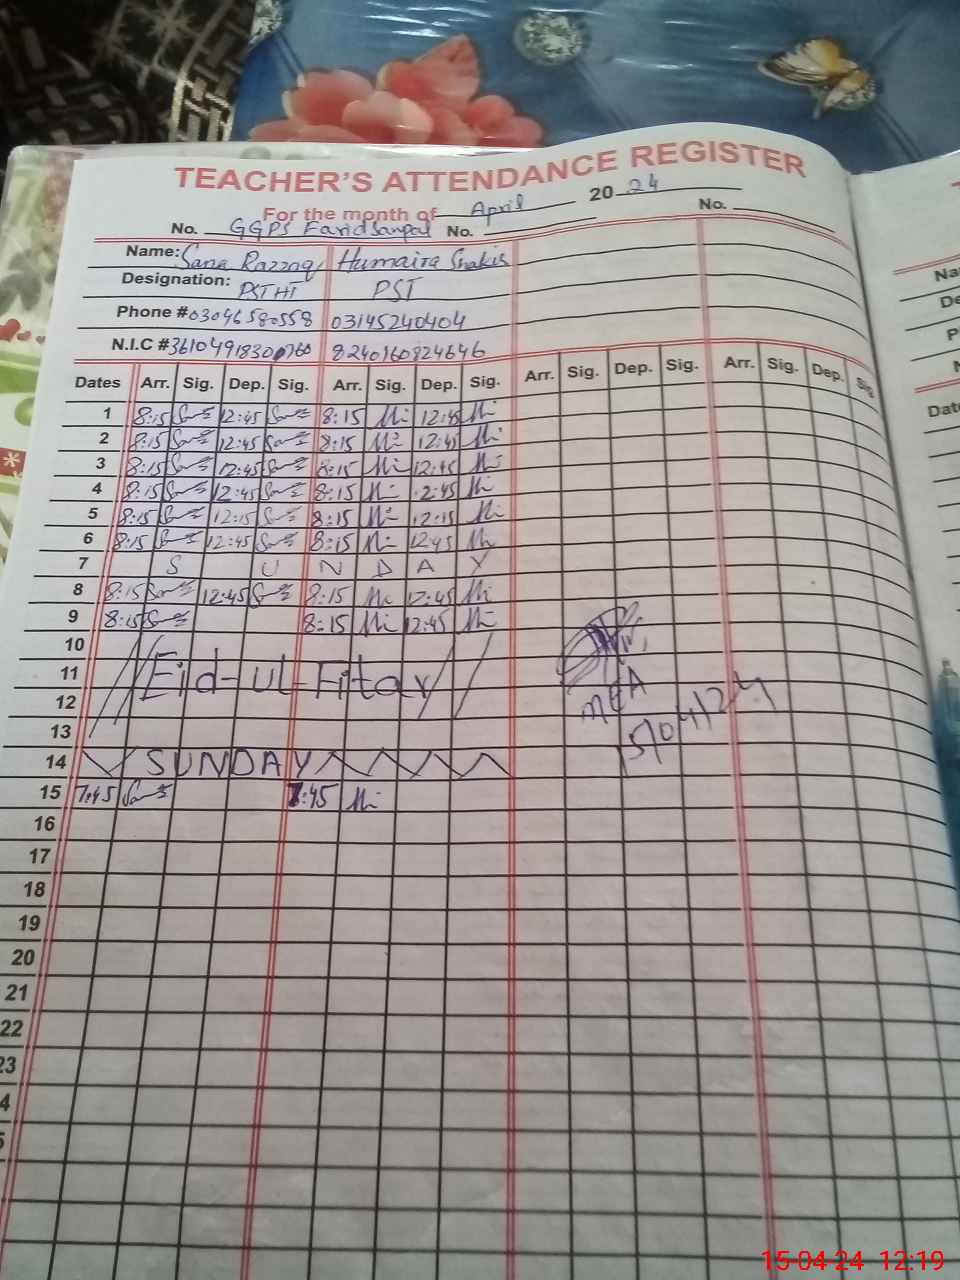 TEACHER'S ATTENDANCE REGISTER
For the month of April 20 24
No. GGPS Faridsanpal No. No.
Name: Sana Razzaq Humaira Shakir
Designation: PST HT PST
Phone # 03046580558 03145240404
N.I.C # 8240160824646
Dates Arr. Sig. Dep. Sig. Arr. Sig. Dep. Sig. Arr. Sig. Dep. Sig. Arr. Sig. Dep. Sig
1 8:15 12:45 8:15 12:45
2 8:15 12:45 8:15 12:45
3 8:15 12:45 8:15 12:45
4 8:15 12:45 8:15 2:45
5 8:15 12:15 8:15 12:15
6 8:15 12:45 8:15 12:45
7 S U N D A Y
8 8:15 12:45 8:15 12:45
9 8:15 8:15 12:45
10
11 Eid-ul-Fitar
12 MEA
13 15/04/24
14 SUNDAY
15 7:45 7:45
16
17
18
19
20
21
22
23
4
5
Na
De
P
N
Date
15-04-24 12:19